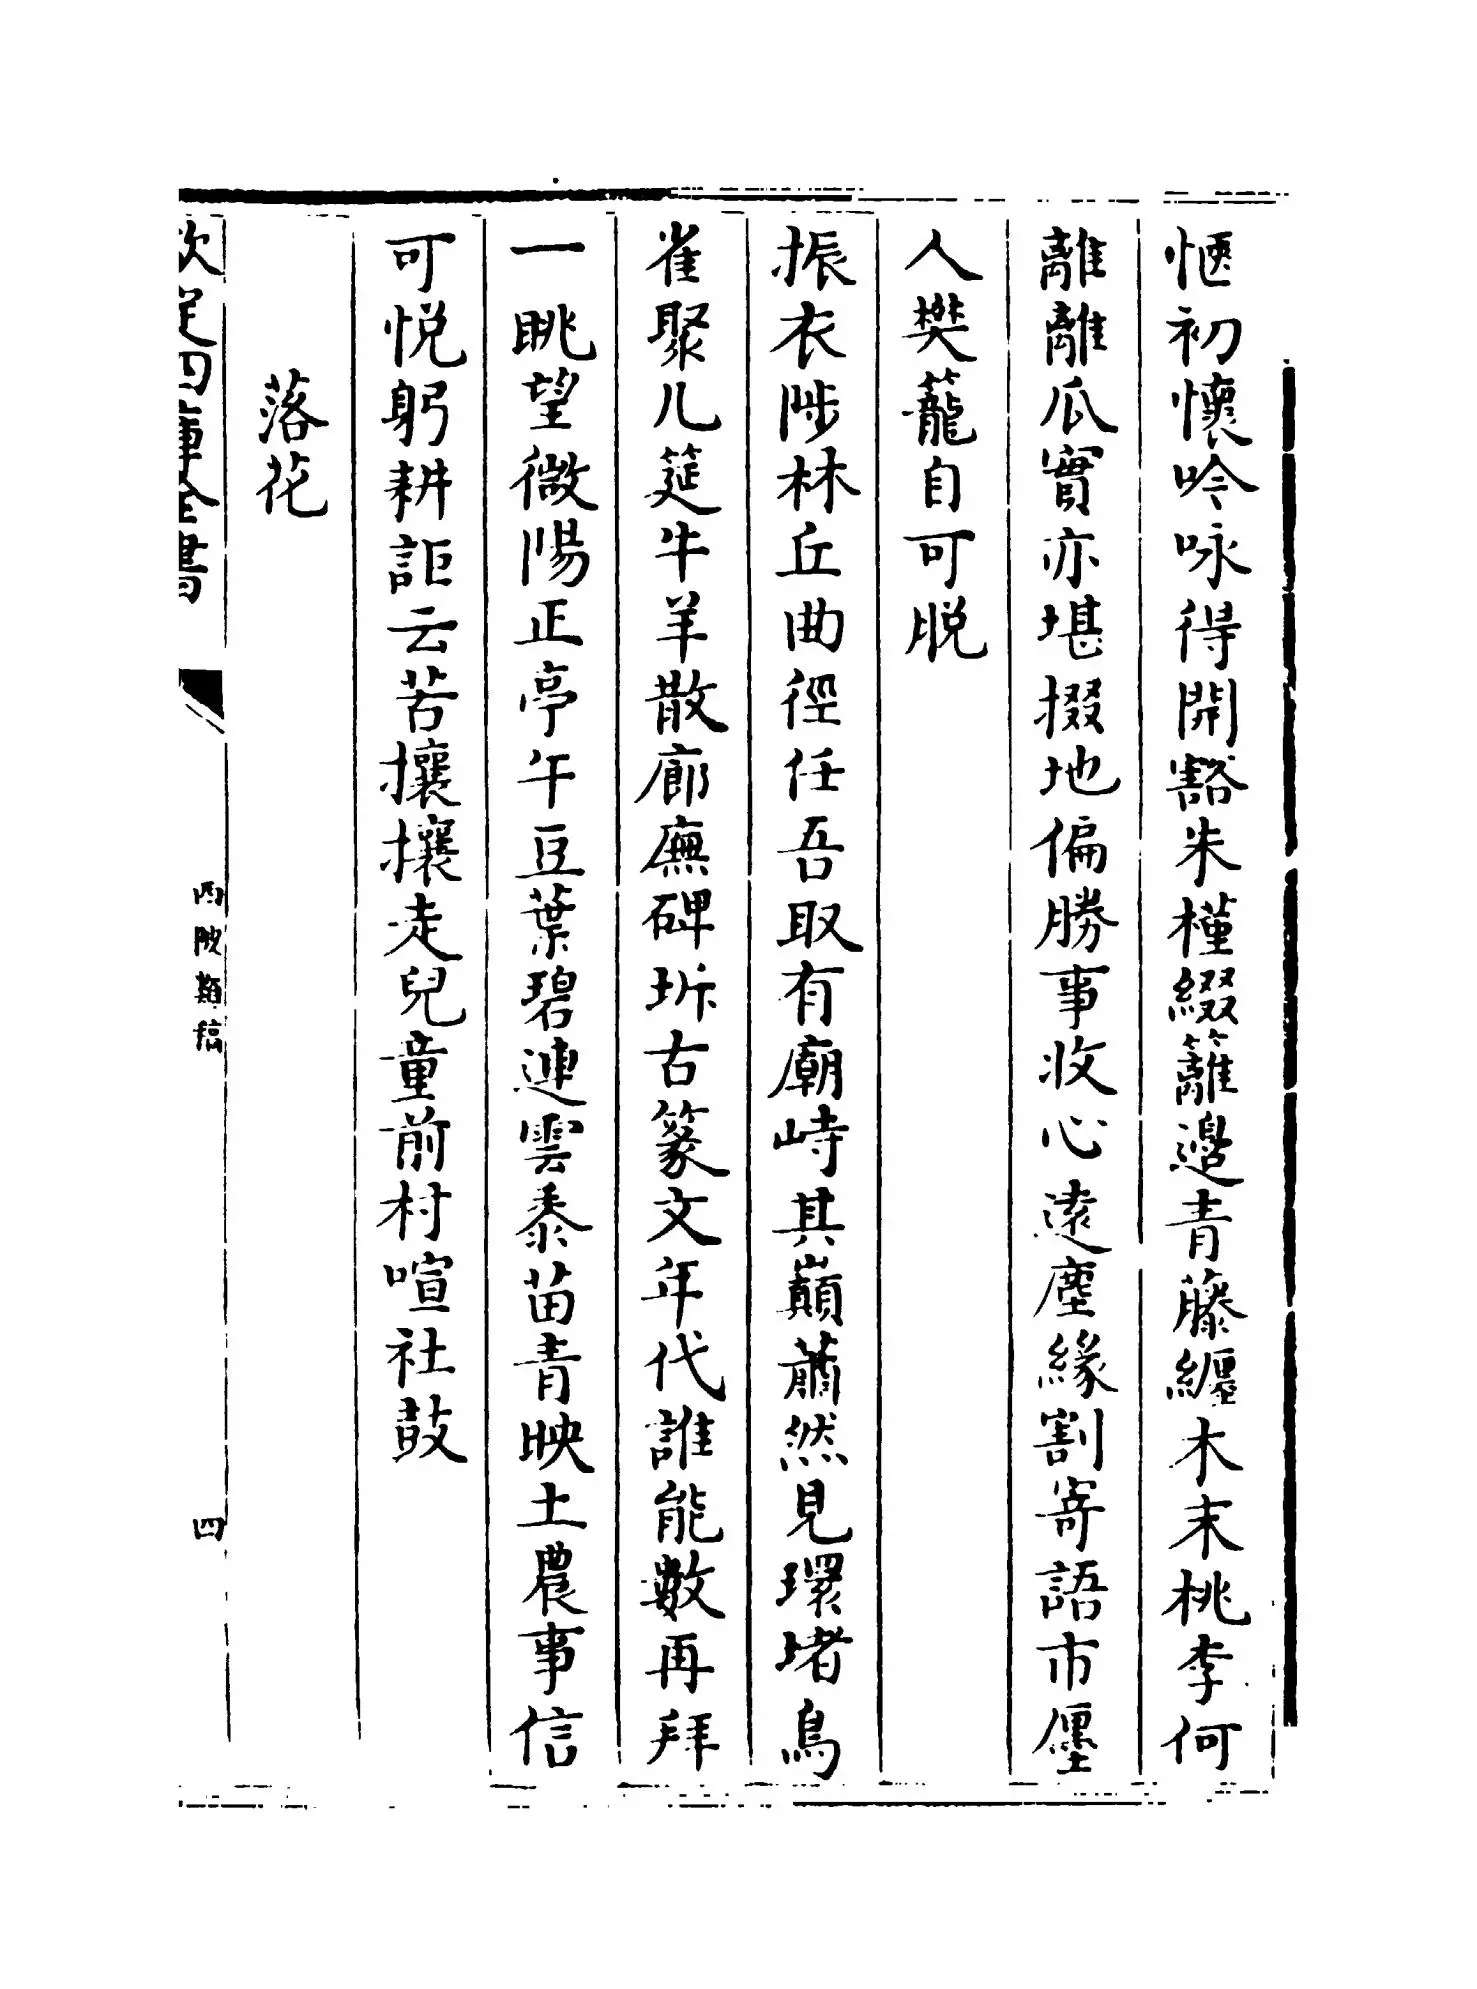 愜初懷吟咏得開豁朱槿綴籬邊青藤纏木末桃李何
離離瓜實亦堪掇地偏勝事收心遠塵緣割寄語市㕓
人樊籠自可脱
振衣陟林丘曲徑任吾取有廟峙其巔蕭然見環堵鳥
雀聚几筵牛羊散廊廡碑坼古篆文年代誰能數再拜
一眺望微陽正亭午豆葉碧連雲黍苗青映土農事信
可悦躬耕詎云苦攘攘走兒童前村喧社鼓
落花
欽定四庫全書
西陂類稿
四